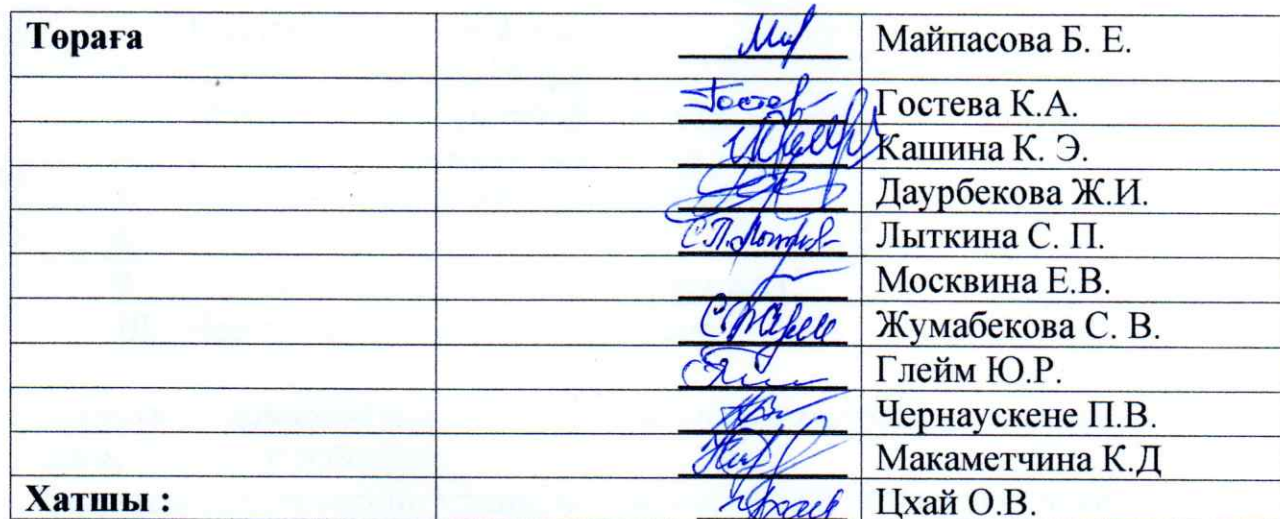 Төраға Майпасова Б. Е.
Гостева К.А.
Кашина К. Э.
Даурбекова Ж.И.
Лыткина С. П.
Москвина Е.В.
Жумабекова С. В.
Глейм Ю.Р.
Чернаускене П.В.
Макаметчина К.Д
Хатшы : Цхай О.В.